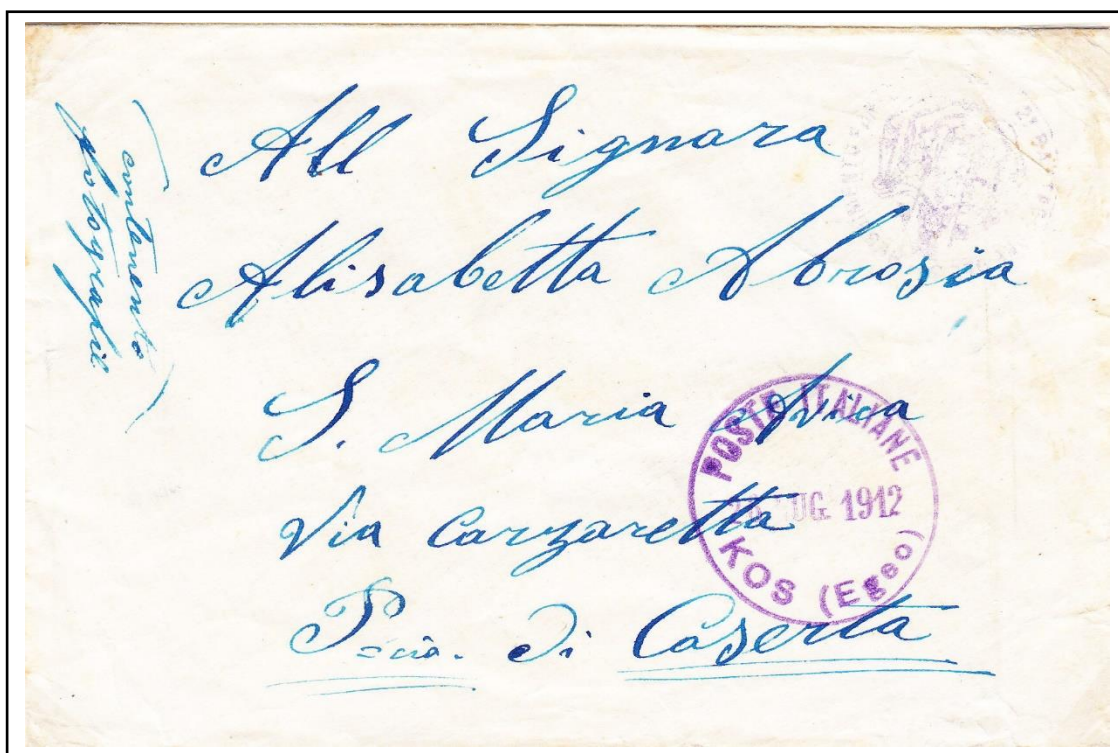 (contenento
fotografie)
All Signara
Alisabetta Abrosia
S. Maria
Via Carzaretta
P=cia. Di Caserta
POSTE ITALIANE
1912
KOS (Egeo)